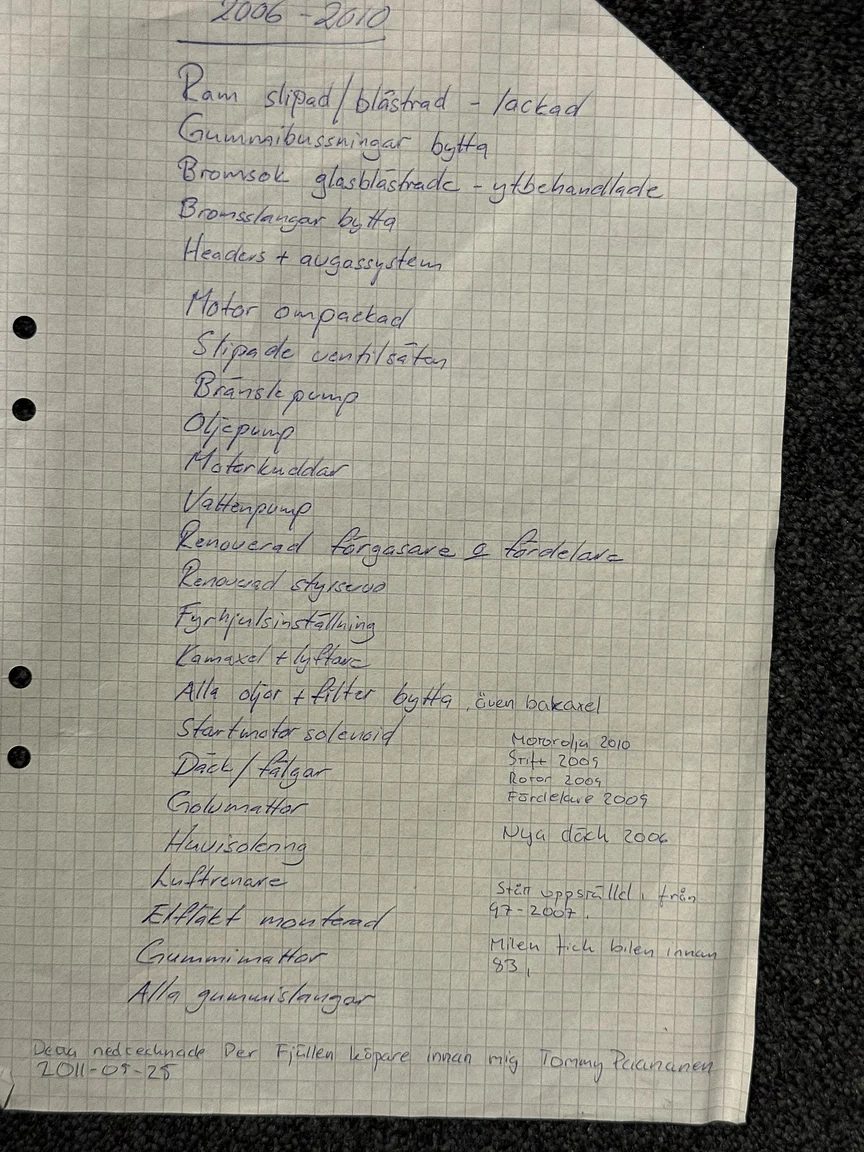 2006 - 2010
Ram slipad/blästrad - lackad
Gummibussningar bytta
Bromsok glasblästrade - ytbehandlade
Bromsslangar bytta
Headers + avgassystem
Motor ompackad
Slipade ventilsäten
Bränslepump
Oljepump
Motorkuddar
Vattenpump
Renoverad förgasare & fördelare
Renoverad styrservo
Fyrhjulsinställning
Kamaxel + lyftare
Alla oljor + filter bytta, även bakaxel
Startmotor solenoid
Motorolja 2010
Stift 2009
Däck/fälgar
Rotor 2009
Fördelare 2009
Golvmattor
Nya däck 2006
Huvisolering
Luftrenare
Stått uppställd, från
97-2007.
Elfläkt monterad
Gummimattor
Milen fick bilen innan
83,
Alla gummislangar
nedtecknade Per Fjällen köpare innan mig Tommy Paananen
2011-05-25